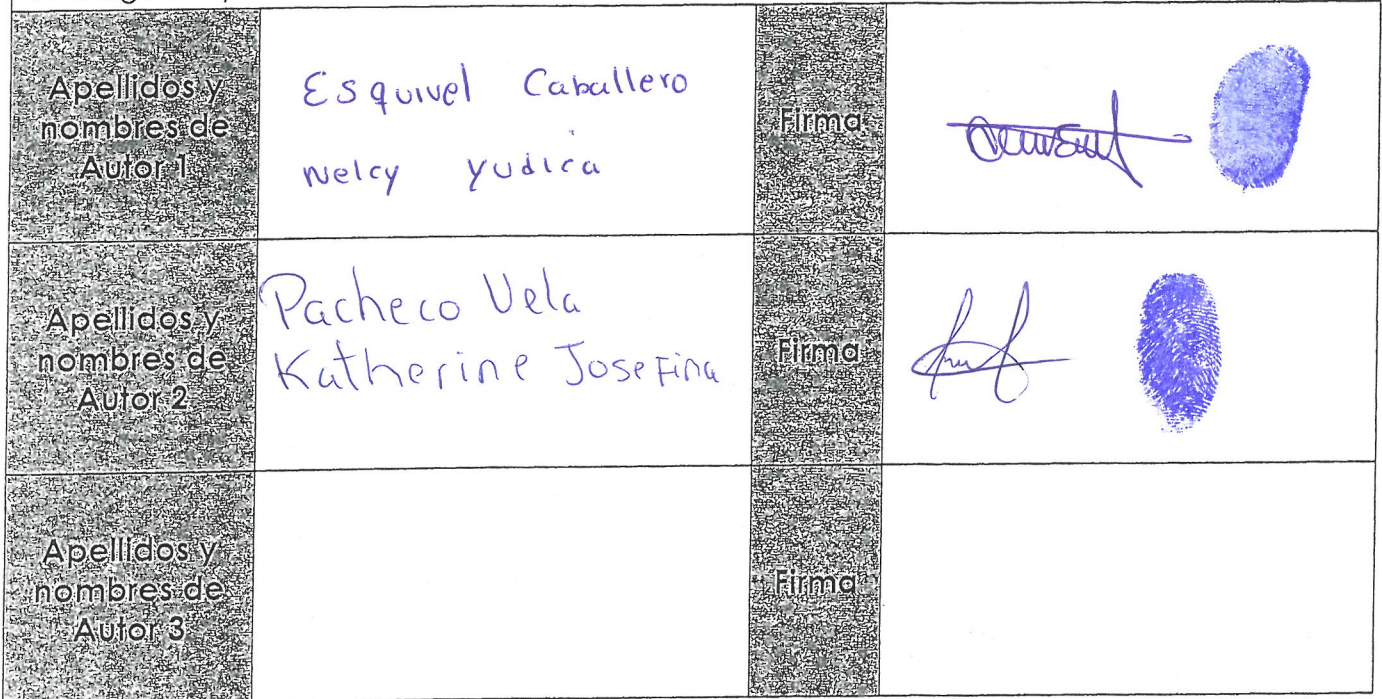 Apellidos y
nombres de
Autor 1
Esquivel Caballero
Nelcy Yudica
Firma
Apellidos y
nombres de
Autor 2
Pacheco Vela
Katherine Josefina
Firma
Apellidos y
nombres de
Autor 3
Firma